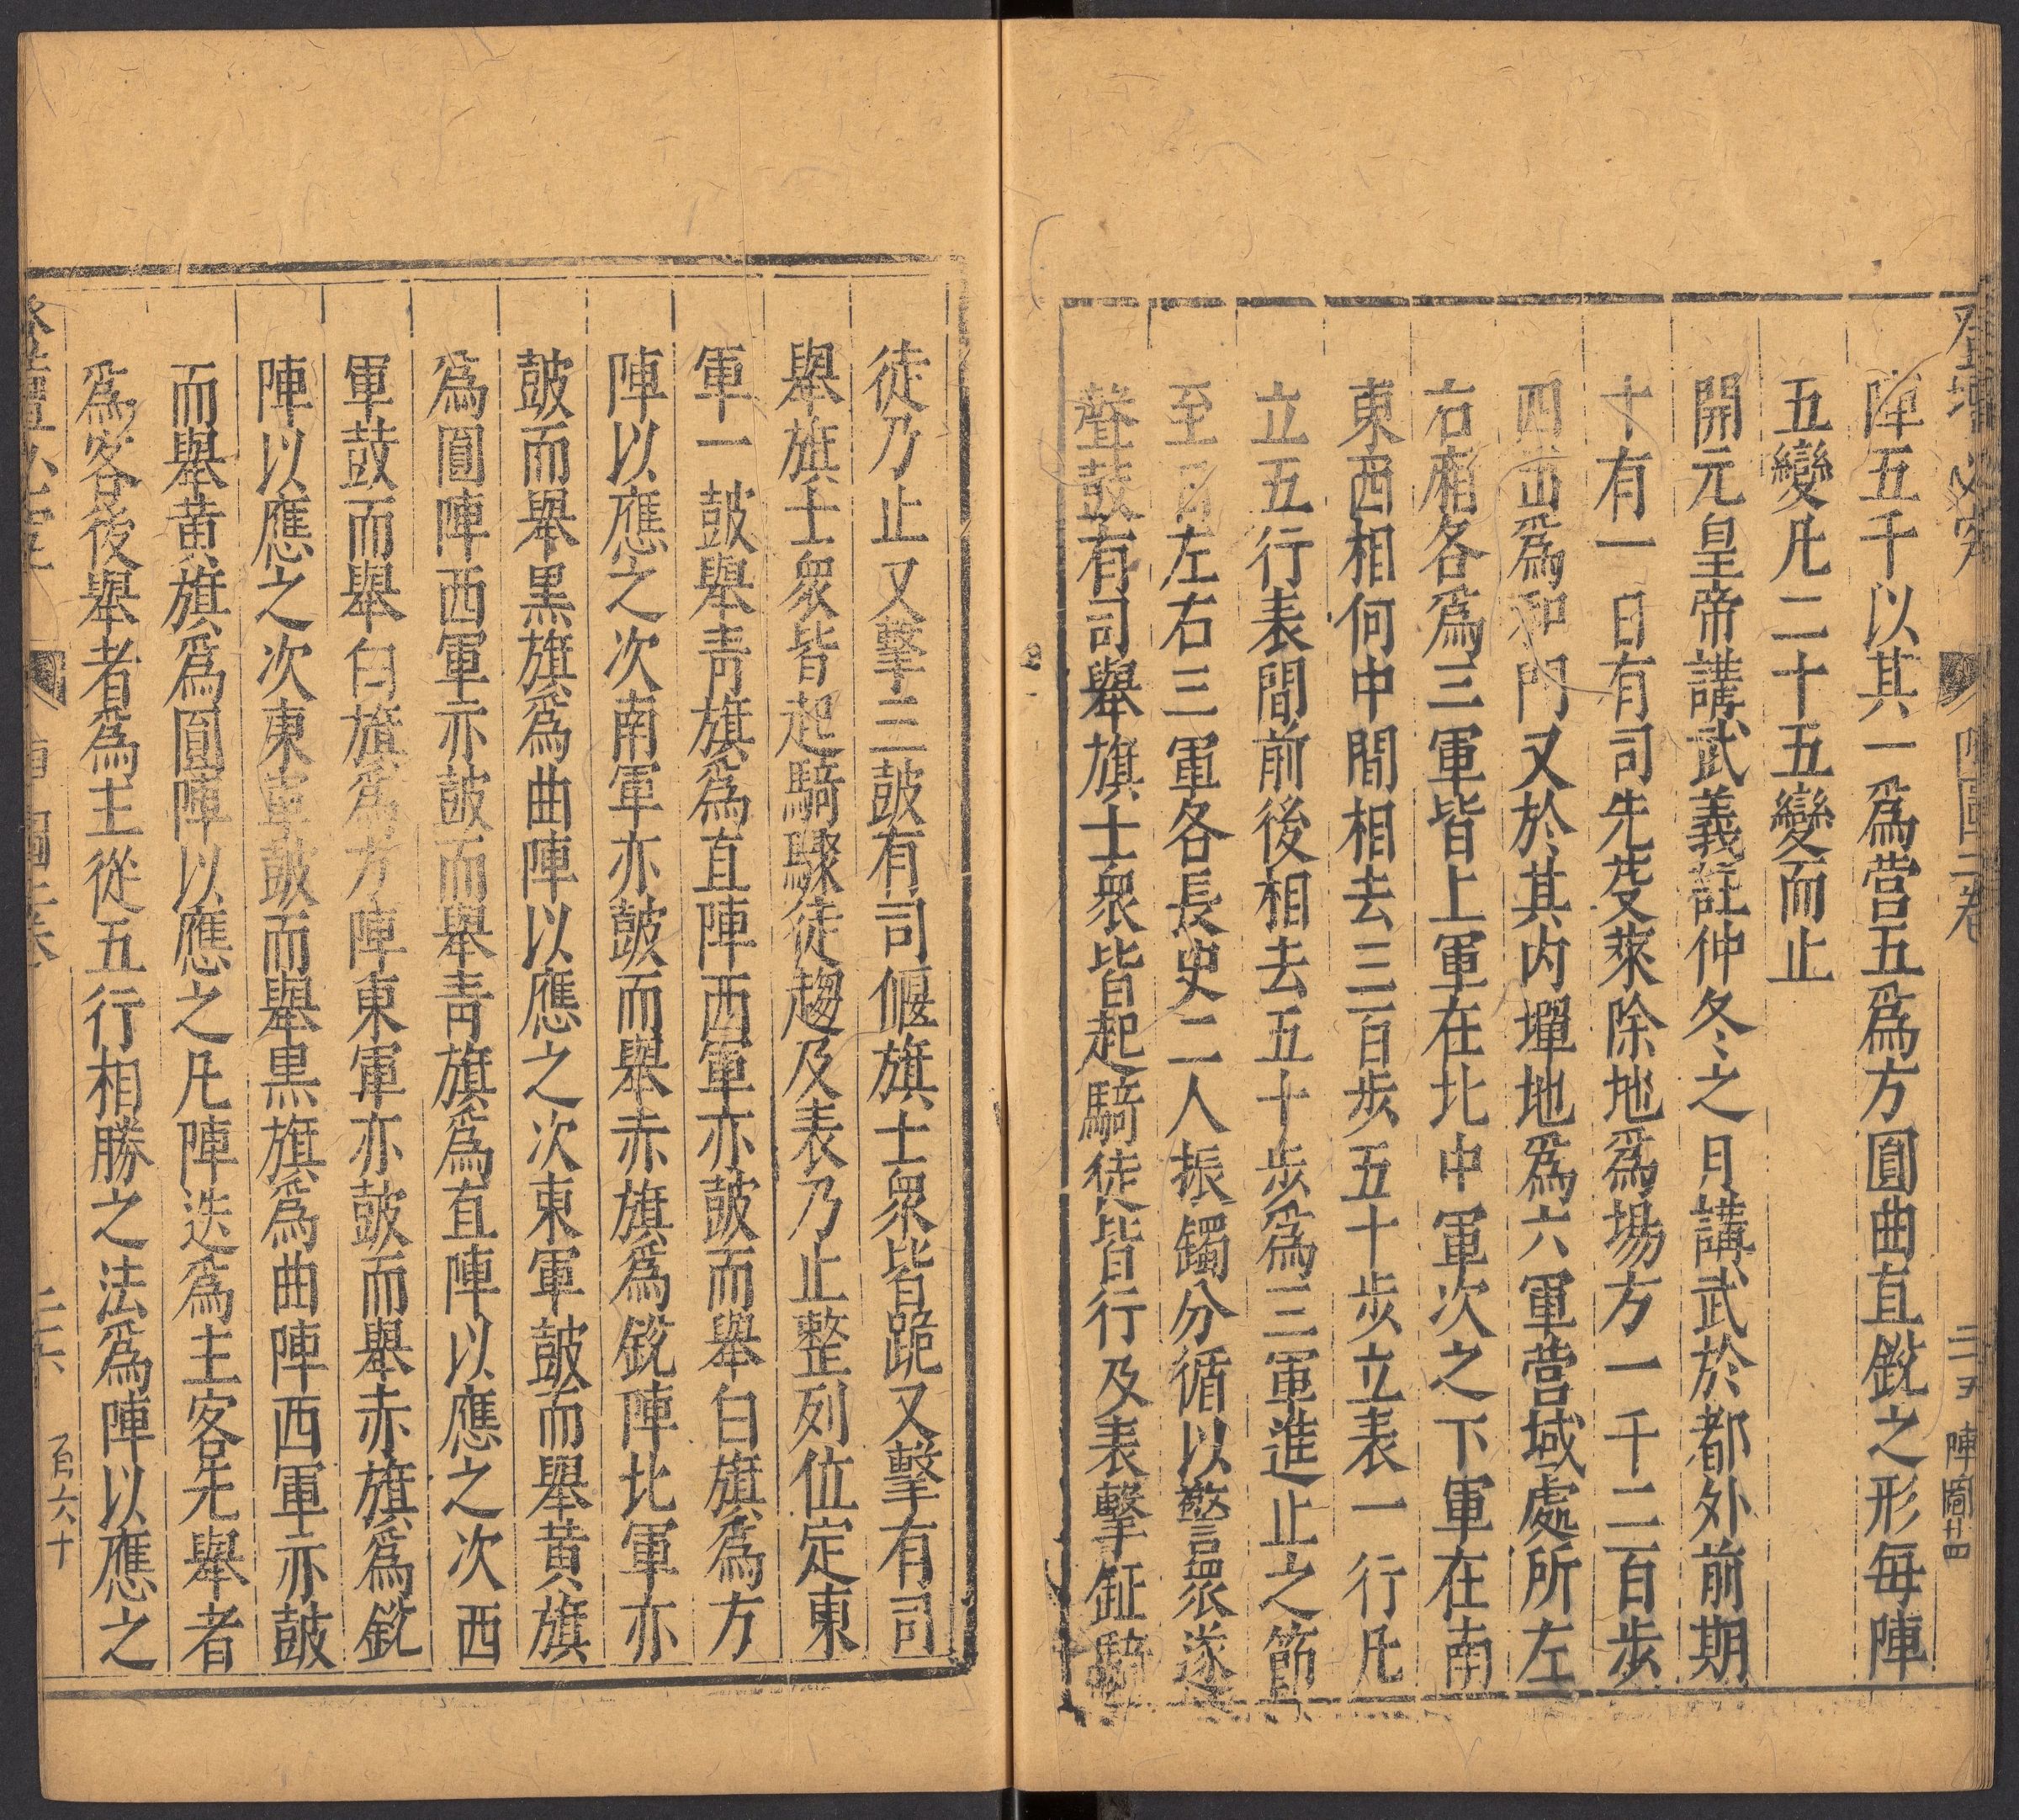 登壇必究
陣圖二卷
二十五
陣圖廿四
陣五千以其一爲營五爲方圓曲直銳之形每陣
五變凡二十五變而止
開元皇帝講武義註仲冬之月講武於都外前期
十有一日有司先芟萊除地爲場方一千二百步
四出爲和門又於其内墠地爲六軍營域處所左
右廂各爲三軍皆上軍在北中軍次之下軍在南
東西相向中間相去三百步五十步立表一行凡
立五行表間前後相去五十步爲三軍進止之節
至日左右三軍各長史二人振鐲分循以警衆遂
聲鼓有司舉旗士衆皆起騎徒皆行及表擊鉦騎
徒乃止又擊三皷有司偃旗士衆皆跪又擊有司
舉旗士衆皆起騎驟徒趨及表乃止整列位定東
軍一皷舉靑旗爲直陣西軍亦皷而舉白旗爲方
陣以應之次南軍亦皷而舉赤旗爲銳陣北軍亦
皷而舉黒旗爲曲陣以應之次東軍皷而舉黄旗
爲圓陣西軍亦皷而舉靑旗爲直陣以應之次西
軍鼓而舉白旗爲方陣東軍亦皷而舉赤旗爲銳
陣以應之次東軍皷而舉黒旗爲曲陣西軍亦皷
而舉黄旗爲圓陣以應之凡陣迭爲主客先舉者
爲客後舉者爲主從五行相勝之法爲陣以應之
登壇必究
陣圖二卷
二十六
百六十